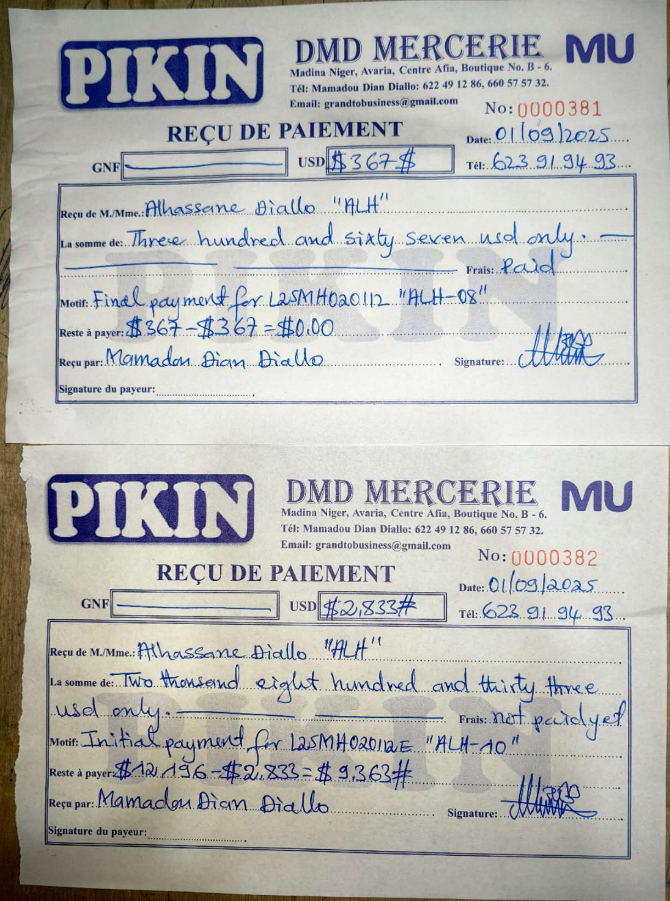 PIKIN
DMD MERCERIE MU
Madina Niger, Avaria, Centre Afia, Boutique No. B - 6.
Tél: Mamadou Dian Diallo: 622 49 12 86, 660 57 57 32.
Email: grandtobusiness@gmail.com
No: 0000381
REÇU DE PAIEMENT
Date: 01/09/2025
GNF USD $367$ Tél: 623 91 94 93
Reçu de M./Mme.: Alhassane Diallo "ALH"
La somme de: Three hundred and sixty seven usd only.
Frais: Paid
Motif: Final payment for L25MH020112 "ALH-08"
Reste à payer: $367-$367=$0.00
Reçu par: Mamadou Dian Diallo Signature:
Signature du payeur:
PIKIN
DMD MERCERIE MU
Madina Niger, Avaria, Centre Afia, Boutique No. B - 6.
Tél: Mamadou Dian Diallo: 622 49 12 86, 660 57 57 32.
Email: grandtobusiness@gmail.com
No: 0000382
REÇU DE PAIEMENT
Date: 01/09/2025
GNF USD $2,833# Tél: 623 91 94 93
Reçu de M./Mme.: Alhassane Diallo "ALH"
La somme de: Two thousand eight hundred and thirty three
usd only. Frais: not paid yet
Motif: Initial payment for L25MH020112E "ALH-10"
Reste à payer: $12,196-$2,833=$9,363#
Reçu par: Mamadou Dian Diallo Signature:
Signature du payeur: